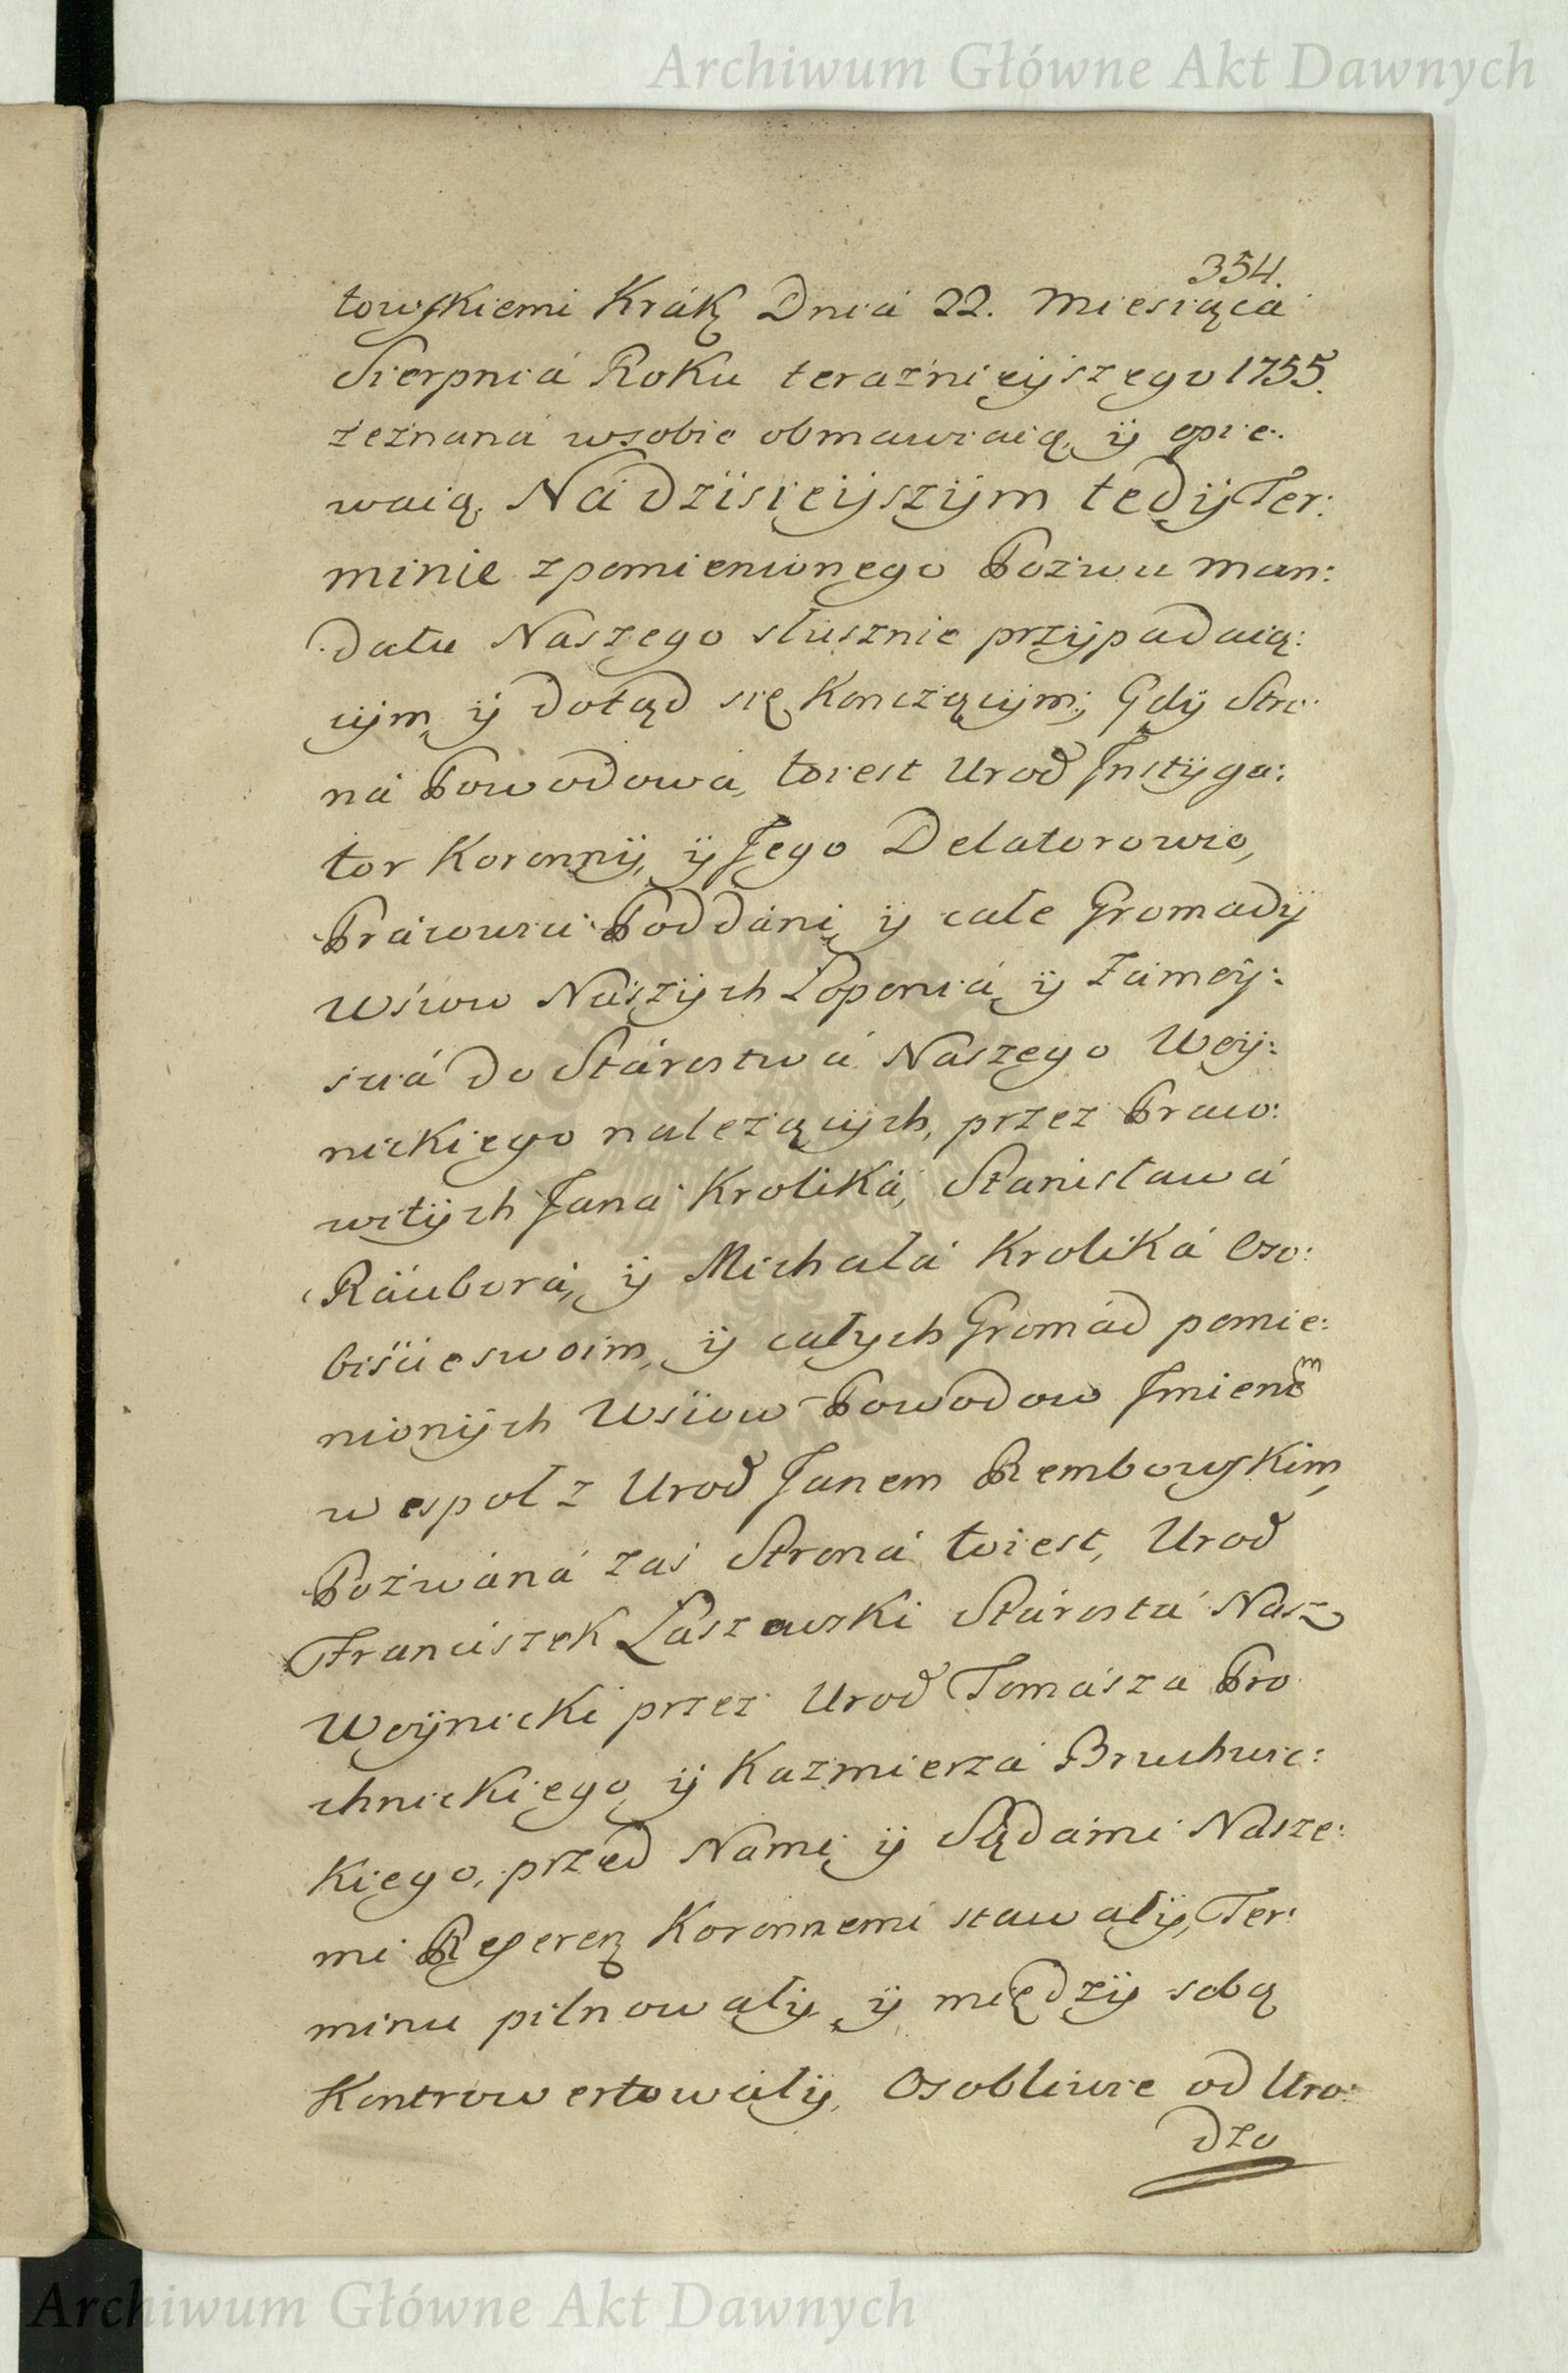 Archiwum Główne Akt Dawnych
354.
towskiemi Krák Dniá 22. Miesiącá
Sierpniá Roku teraźnieÿszego 1755.
zeznaná wsobie obmawiaią, ÿ opie:
waią. Ná dzïsieÿszÿm tedÿ Ter:
minie z pomienionego Pozwu man:
datu Naszego słusznie przÿpadaią:
cÿm, ÿ dotąd się Konczącÿm; Gdÿ Stro
ná Powodowa, toiest Urod Jnstÿga:
tor Koronnÿ, ÿ Jego Delatorowie,
Prácowici Poddáni ÿ całe Gromadÿ
Wsiow Nászÿch Łoponiá ÿ Zamoÿ:
sciá do Stárostwá Naszego Woÿ:
nickiego nalezącÿch, przez Praco:
witÿch Janá Kroliká, Stanisławá
Ráuborá, ÿ Michałá Kroliká Oso:
biście swoim, ÿ całych Gromád pomie:
nionÿch Wsiow Powodow Jmienem
wespoł z Urod Janem Rembowskim,
Pozwáná zaś Stroná toiest, Urod
Franciszek Łaszewski Stárostá Nasz
Woÿnicki przez Urod Tomásza Pro
chnickiego, ÿ Kazmierzá Bruchwic:
Kiego, przed Nami, ÿ Sądámi Násze:
mi Referen Koronnemi stawałÿ, Ter:
minu pilnowałÿ, ÿ międzÿ sobą
Kontrowertowałÿ. Osobliwie od Uro:
dzo
Archiwum Główne Akt Dawnych